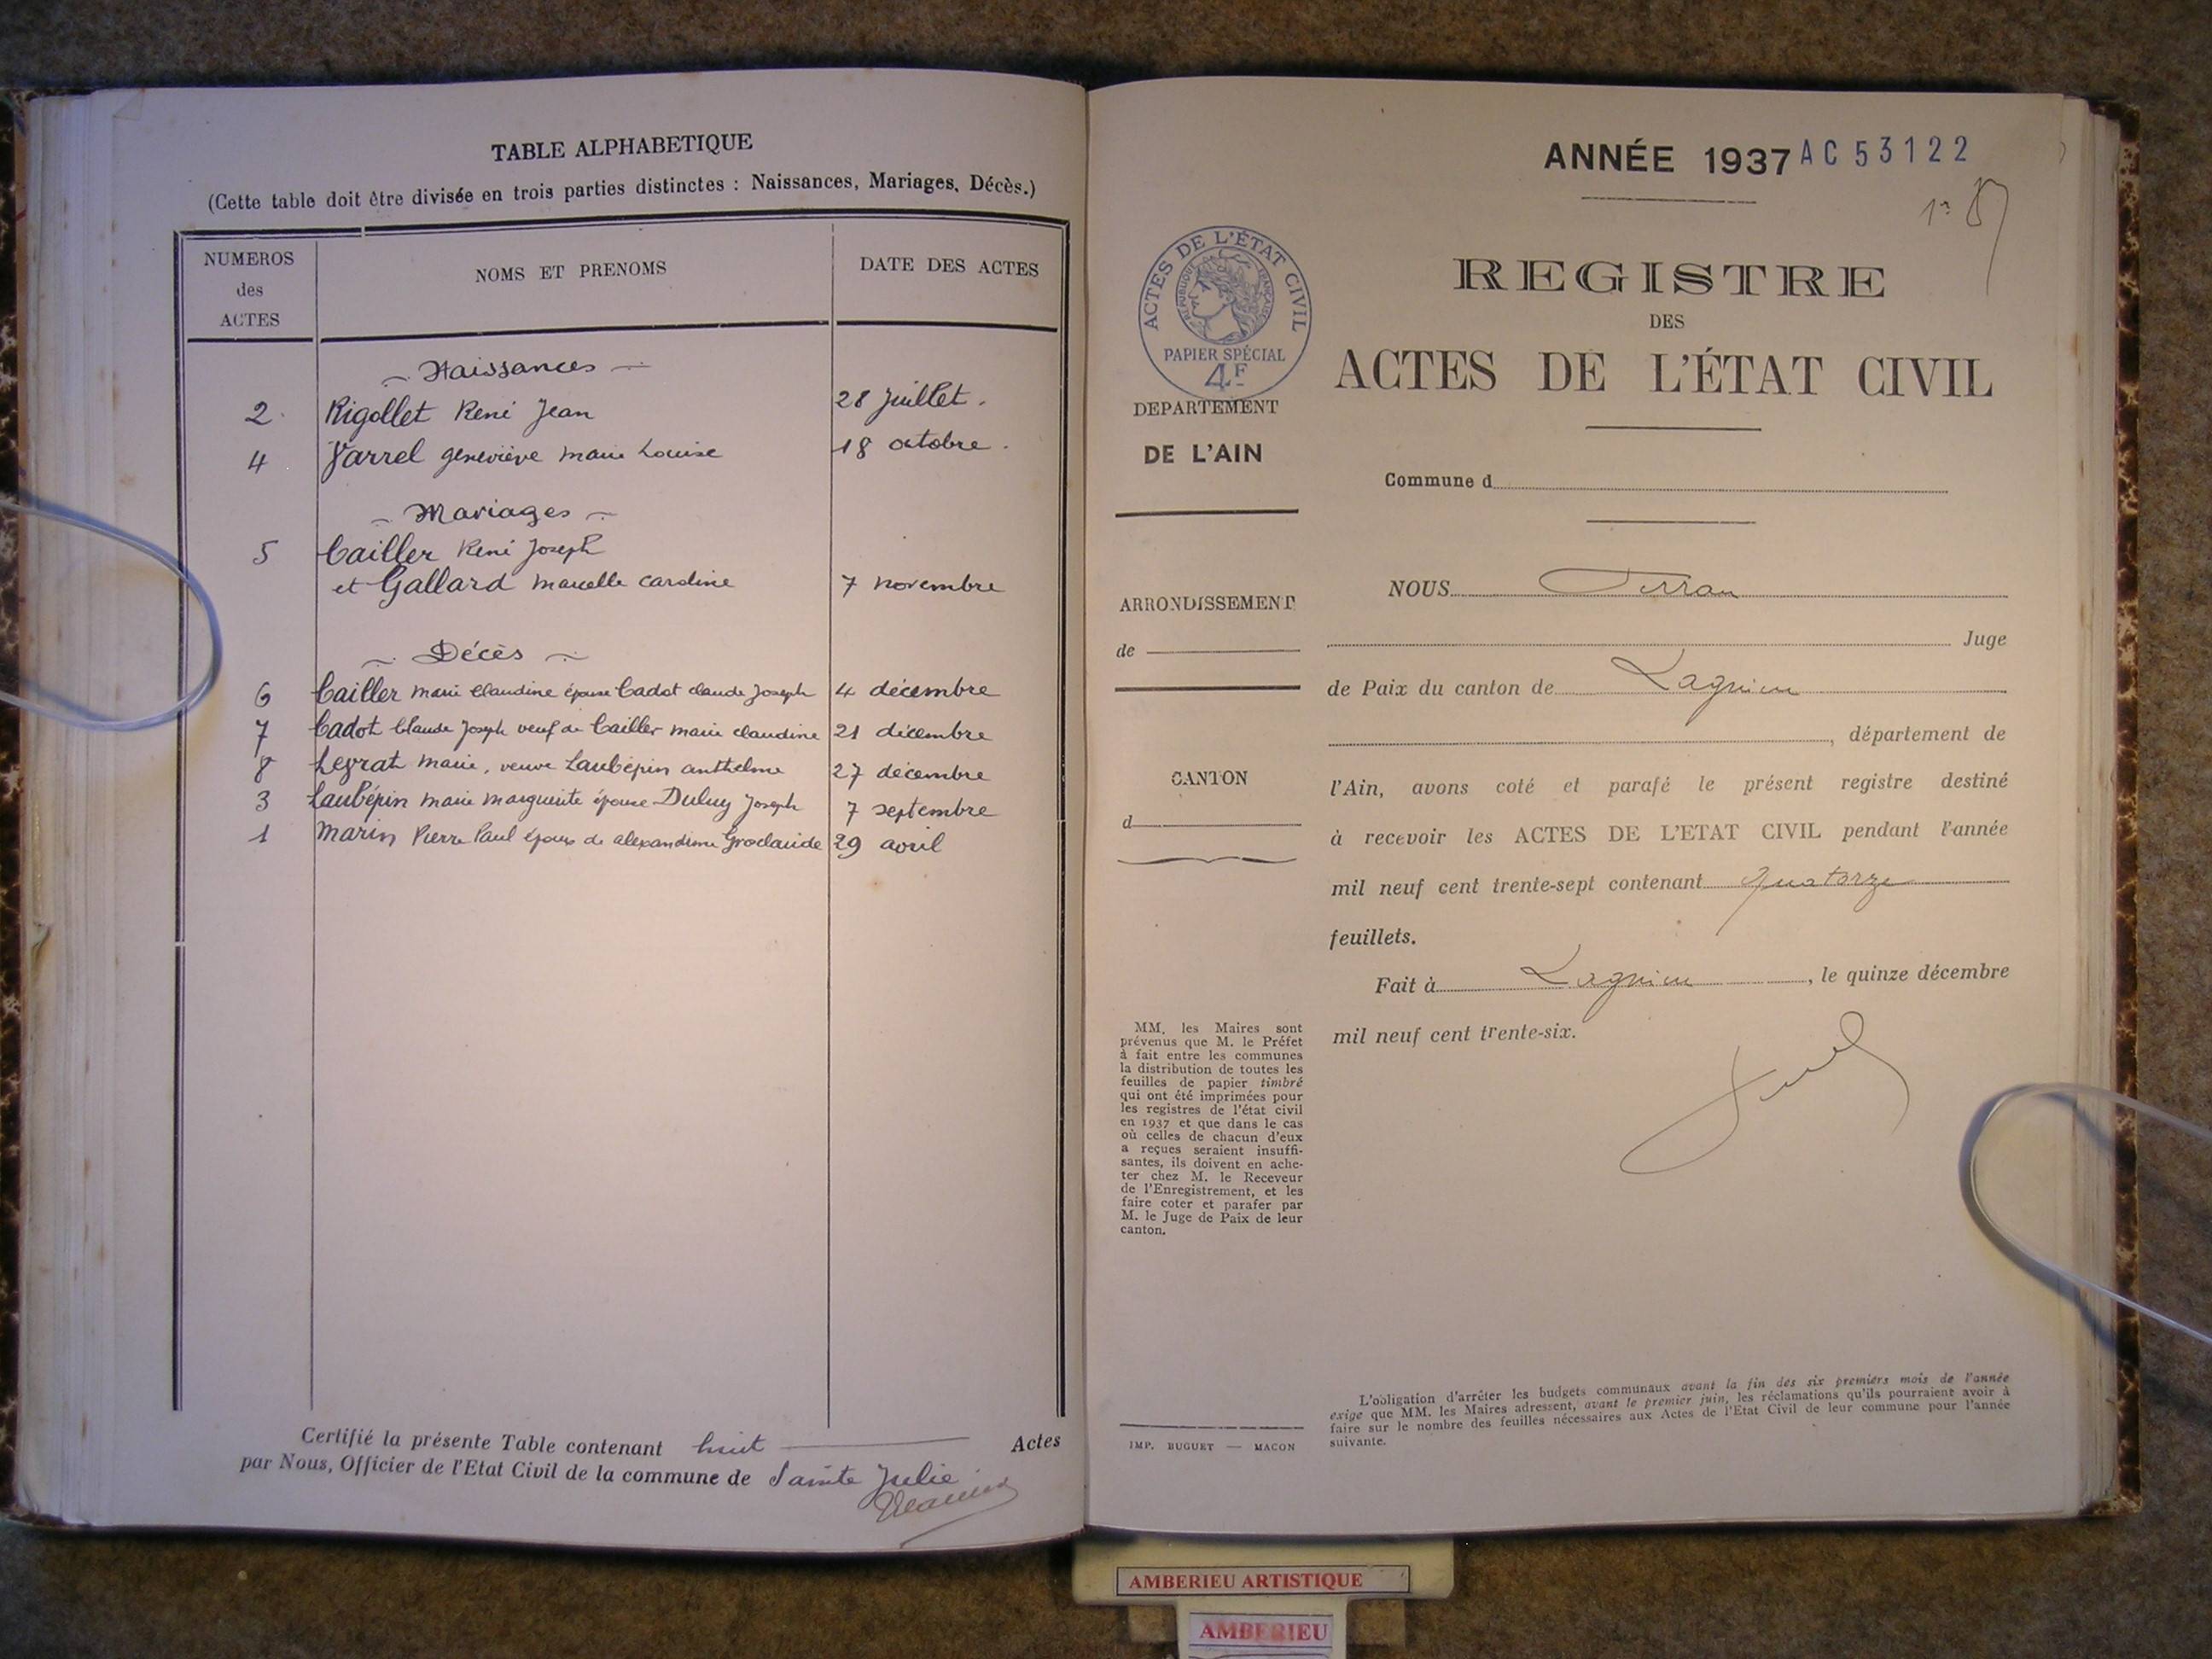 TABLE ALPHABETIQUE
(Cette table doit être divisée en trois parties distinctes : Naissances, Mariages, Décès.)
NUMEROS des ACTES
NOMS ET PRENOMS
DATE DES ACTES
Naissances
2 Rigollet René Jean 28 juillet.
4 Varrel geneviève marie Louise 18 octobre.
Mariages
5 Cailler René Joseph
et Gallard marcelle caroline 7 novembre
Décès
6 Cailler marie Claudine épouse Cadot claude Joseph 4 décembre
7 Cadot Claude Joseph veuf de Cailler marie claudine 21 décembre
8 Legrat marie, veuve Laubépin anthelme 27 décembre
3 Laubépin marie marguerite épouse Joseph 7 septembre
1 Marin Pierre Paul époux de alexandrine Groclaude 29 avril
Certifié la présente Table contenant huit Actes
par Nous, Officier de l'Etat Civil de la commune de Sainte Julie
ANNÉE 1937 AC 53122
REGISTRE
DES
ACTES DE L'ÉTAT CIVIL
ACTES DE L'ÉTAT CIVIL
RÉPUBLIQUE FRANÇAISE
PAPIER SPÉCIAL
4F
DEPARTEMENT
DE L'AIN
ARRONDISSEMENT
de
CANTON
d
Commune d
NOUS
Juge
de Paix du canton de Lagnieu
, département de
l'Ain, avons coté et parafé le présent registre destiné
à recevoir les ACTES DE L'ETAT CIVIL pendant l'année
mil neuf cent trente-sept contenant quatorze
feuillets.
Fait à Lagnieu, le quinze décembre
mil neuf cent trente-six.
MM. les Maires sont
prévenus que M. le Préfet
à fait entre les communes
la distribution de toutes les
feuilles de papier timbré
qui ont été imprimées pour
les registres de l'état civil
en 1937 et que dans le cas
où celles de chacun d'eux
a reçues seraient insuffi-
santes, ils doivent en ache-
ter chez M. le Receveur
de l'Enregistrement, et les
faire coter et parafer par
M. le Juge de Paix de leur
canton.
IMP. BUGUET — MACON
L'obligation d'arrêter les budgets communaux avant la fin des six premiers mois de l'année
exige que MM. les Maires adressent, avant le premier juin, les réclamations qu'ils pourraient avoir à
faire sur le nombre des feuilles nécessaires aux Actes de l'Etat Civil de leur commune pour l'année
suivante.
AMBERIEU ARTISTIQUE
AMBERIEU